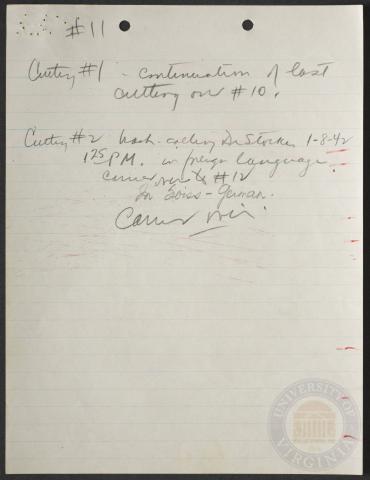 #11
Cutting #1 - continuation of last
cutting on #10.
Cutting #2 Wash. calling Dr Stocker 1-8-42
1 25 PM. in foreign language
carries over to #12
In Swiss-German.
Carries over
UNIVERSITY OF VIRGINIA